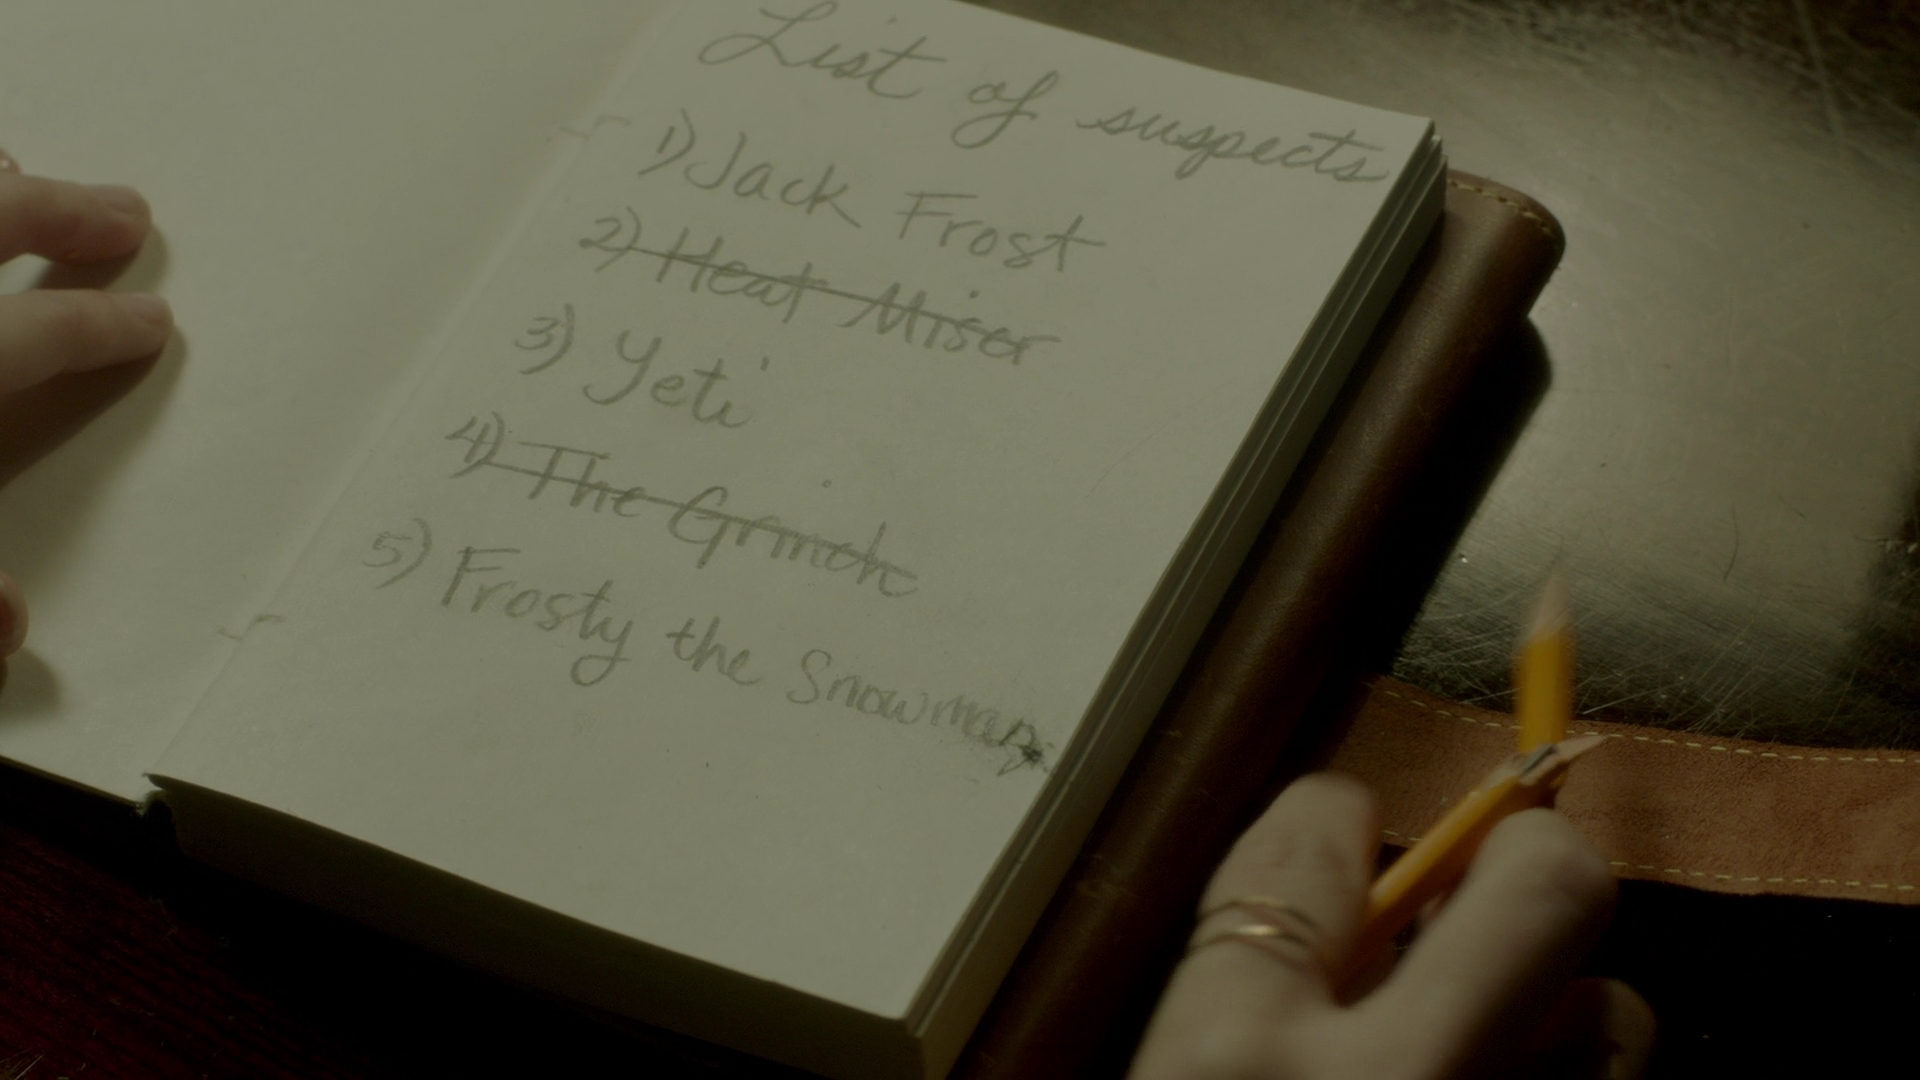 List of suspects
1) Jack Frost
2) Heat Miser
3) Yeti
4) The Grinch
5) Frosty the Snowman